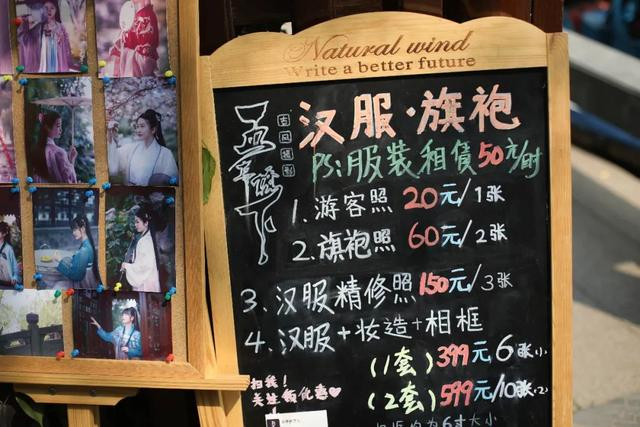 Natural wind
Write a better future
古风摄影
汉服·旗袍
PS:服装租赁50元/时
1.游客照 20元/1张
2.旗袍照 60元/2张
3.汉服精修照150元/3张
4.汉服+妆造+相框
(1套)399元6张
(2套)599元/10张
扫我!
关注领优惠